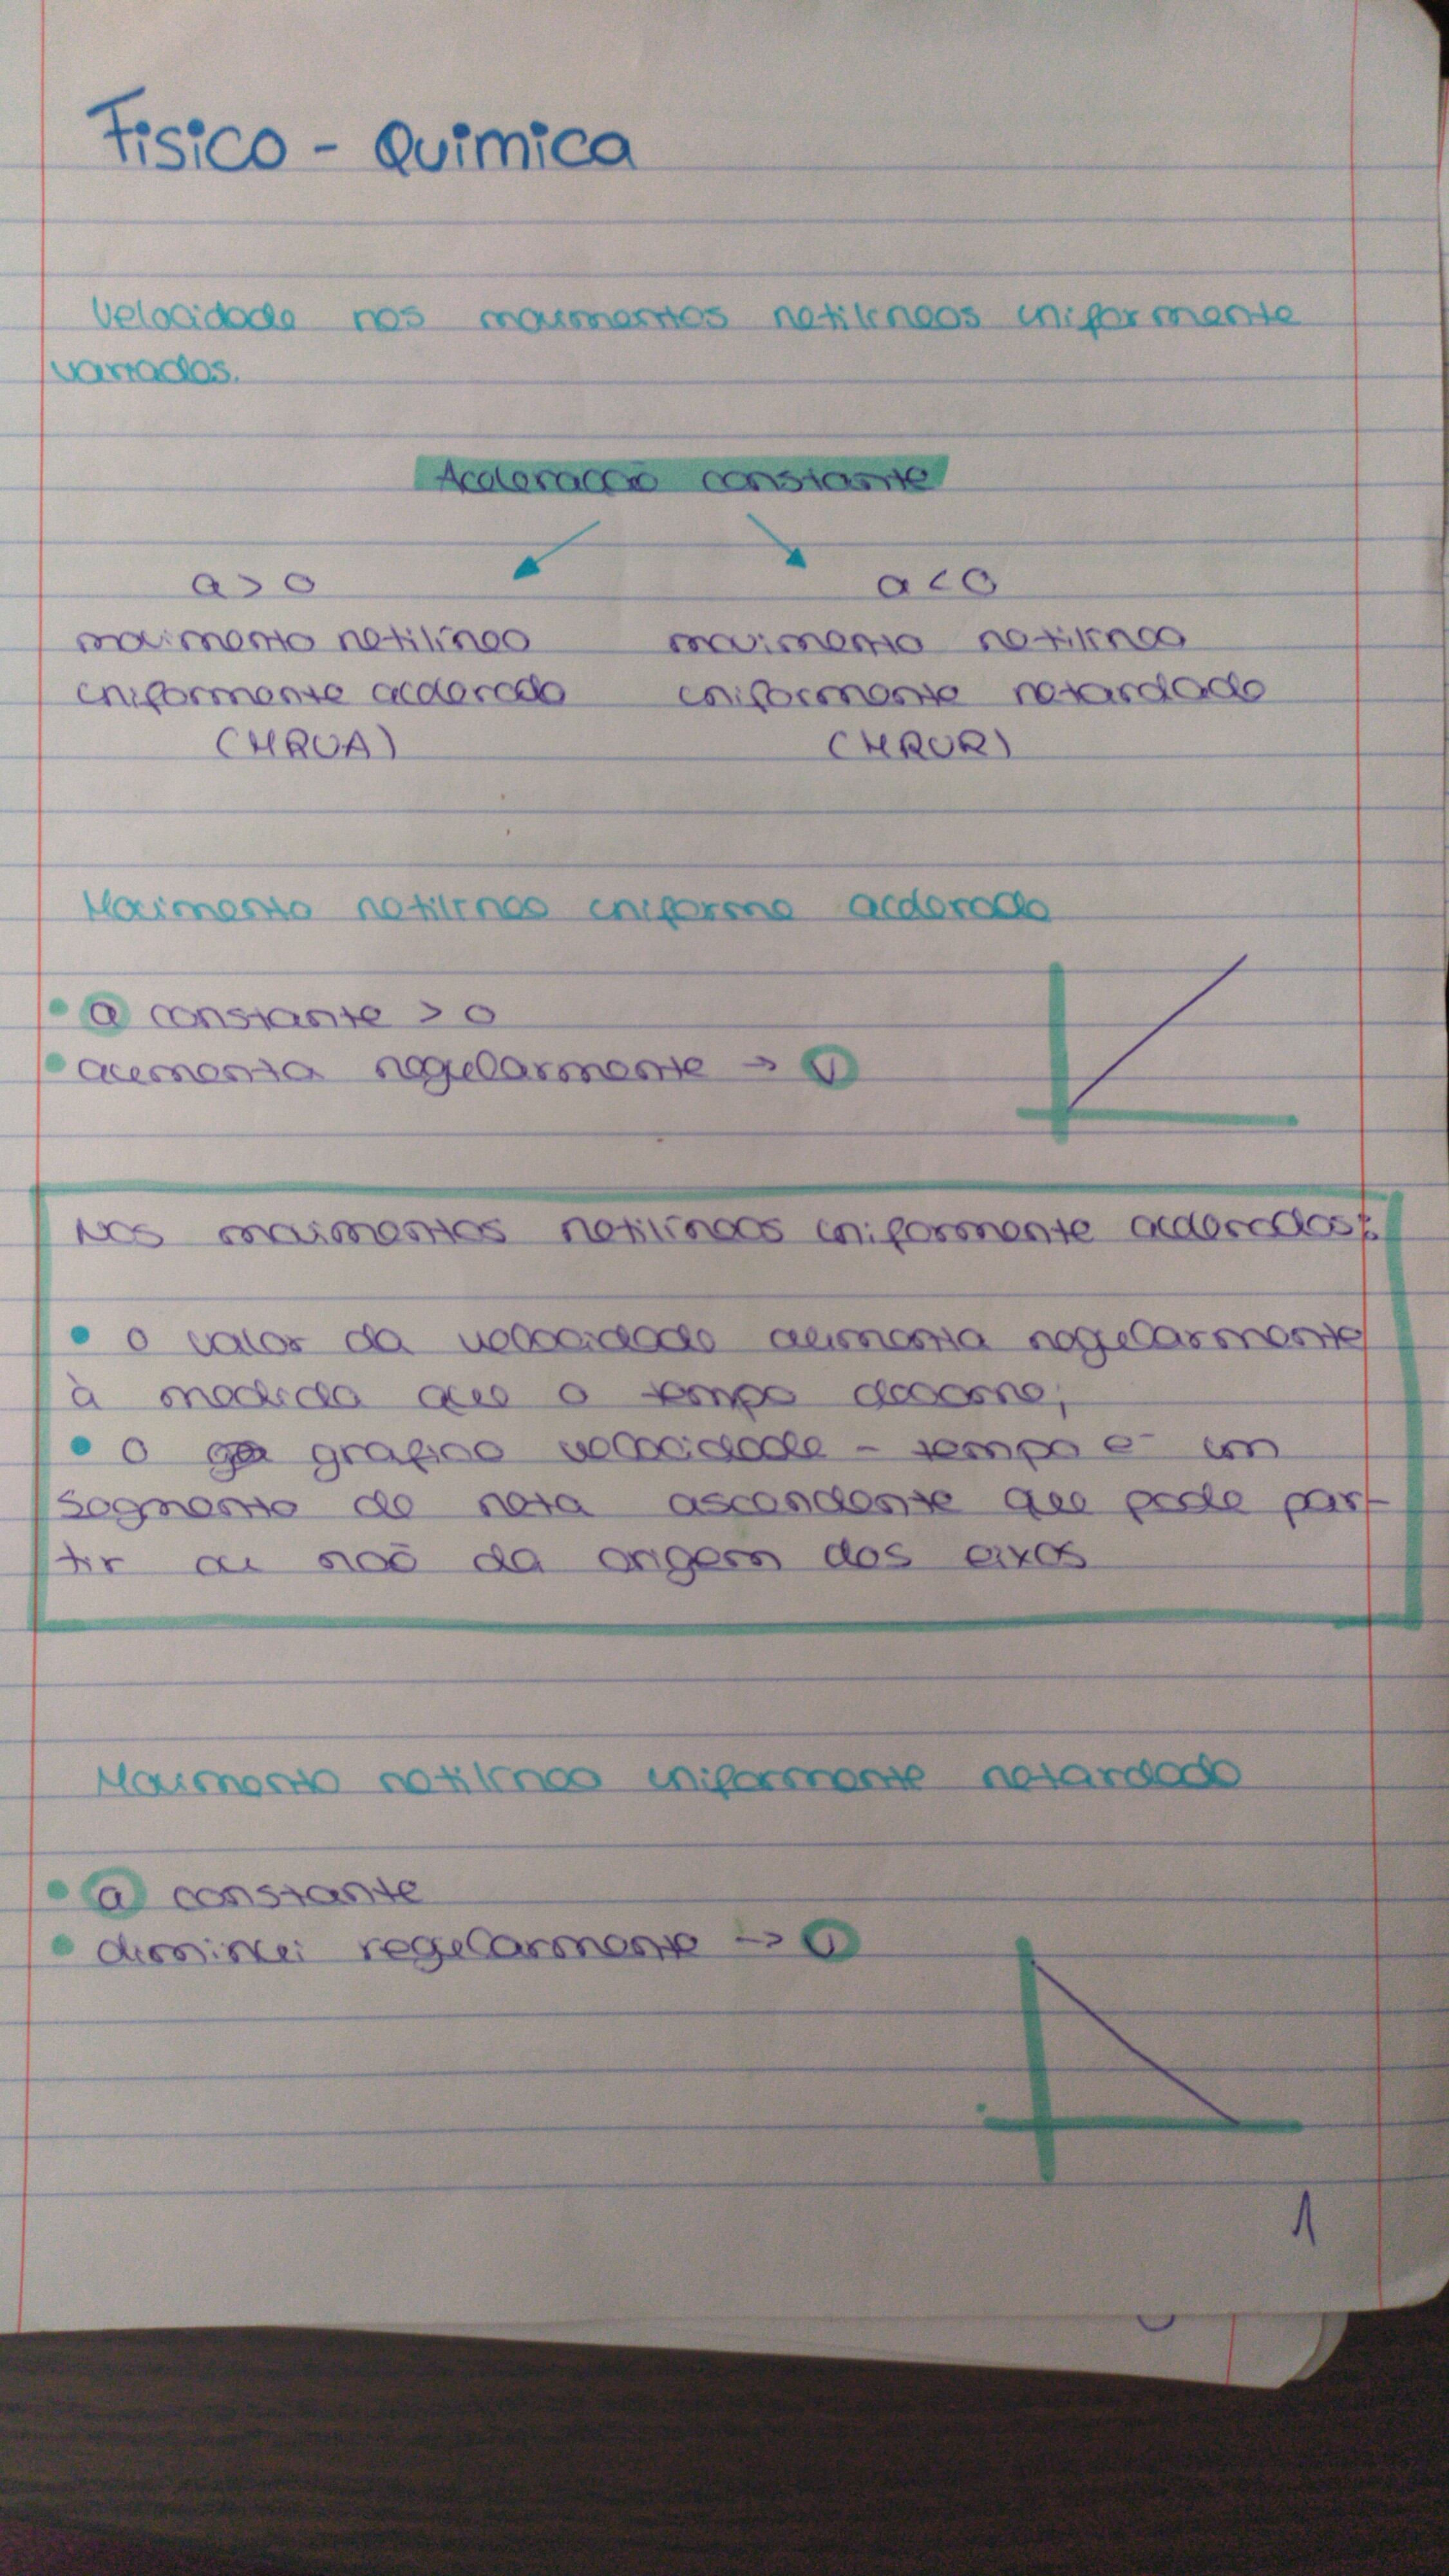 Fisico - Quimica
Velocidade nos movimentos retilineos uniformemente
variados.
Aceleração constante
a > 0
a < 0
movimento retilíneo
movimento retilíneo
uniformemente acelerado
uniformemente retardado
(MRUA)
(MRUR)
Movimento retilineo uniforme acelerado
• a constante > 0
• aumenta regularmente → v
Nos movimentos retilíneos uniformemente acelerados:
• o valor da velocidade aumenta regularmente
à medida que o tempo decorre;
• o grafico velocidade - tempo é um
segmento de reta ascendente que pode par-
tir ou não da origem dos eixos
Movimento retilineo uniformemente retardado
• a constante
• diminui regularmente → v
1